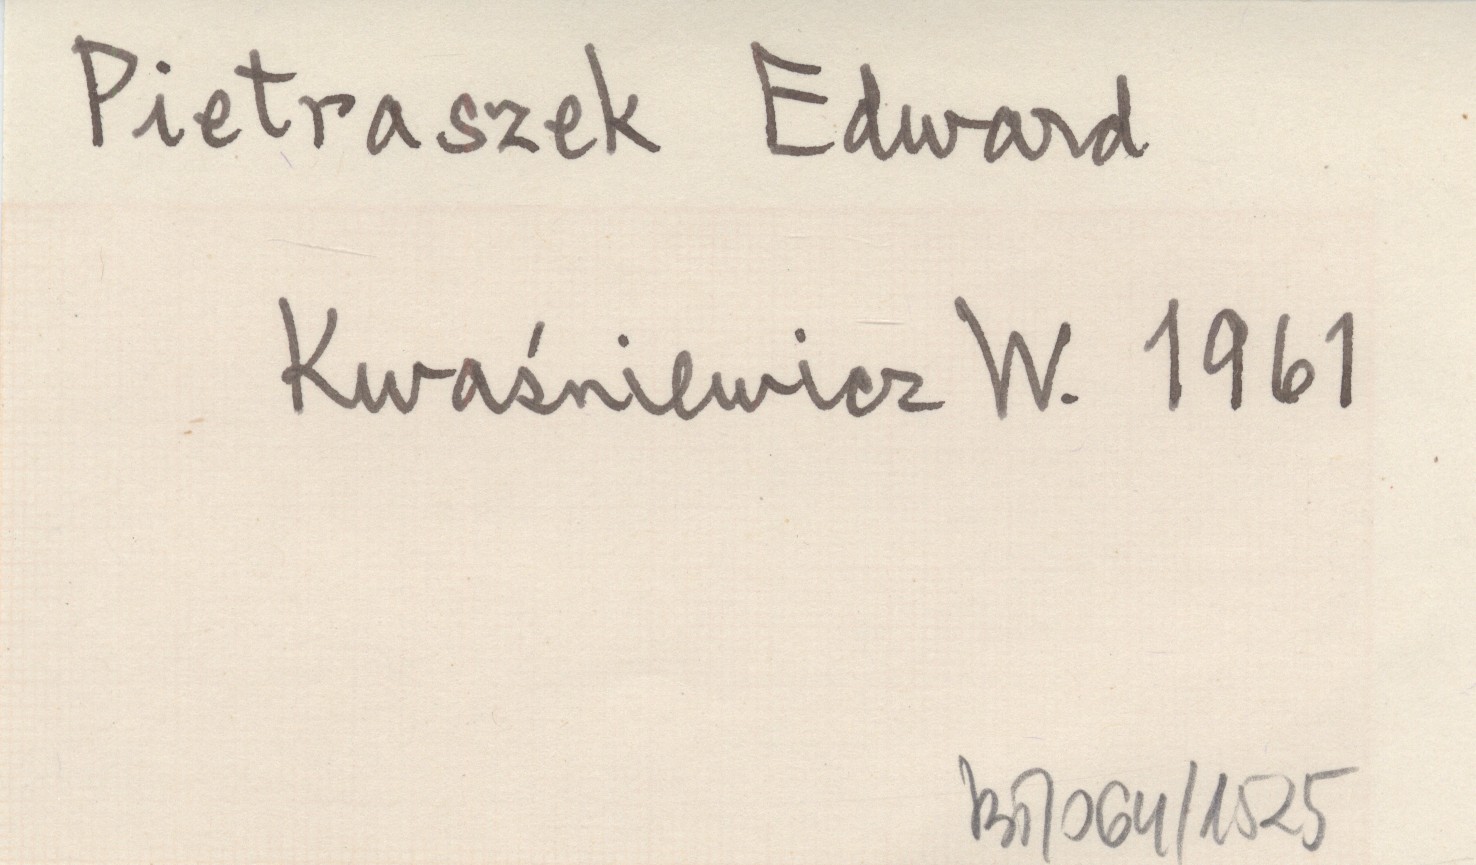 Pietraszek Edward
Kwaśniewicz W. 1961
/1525